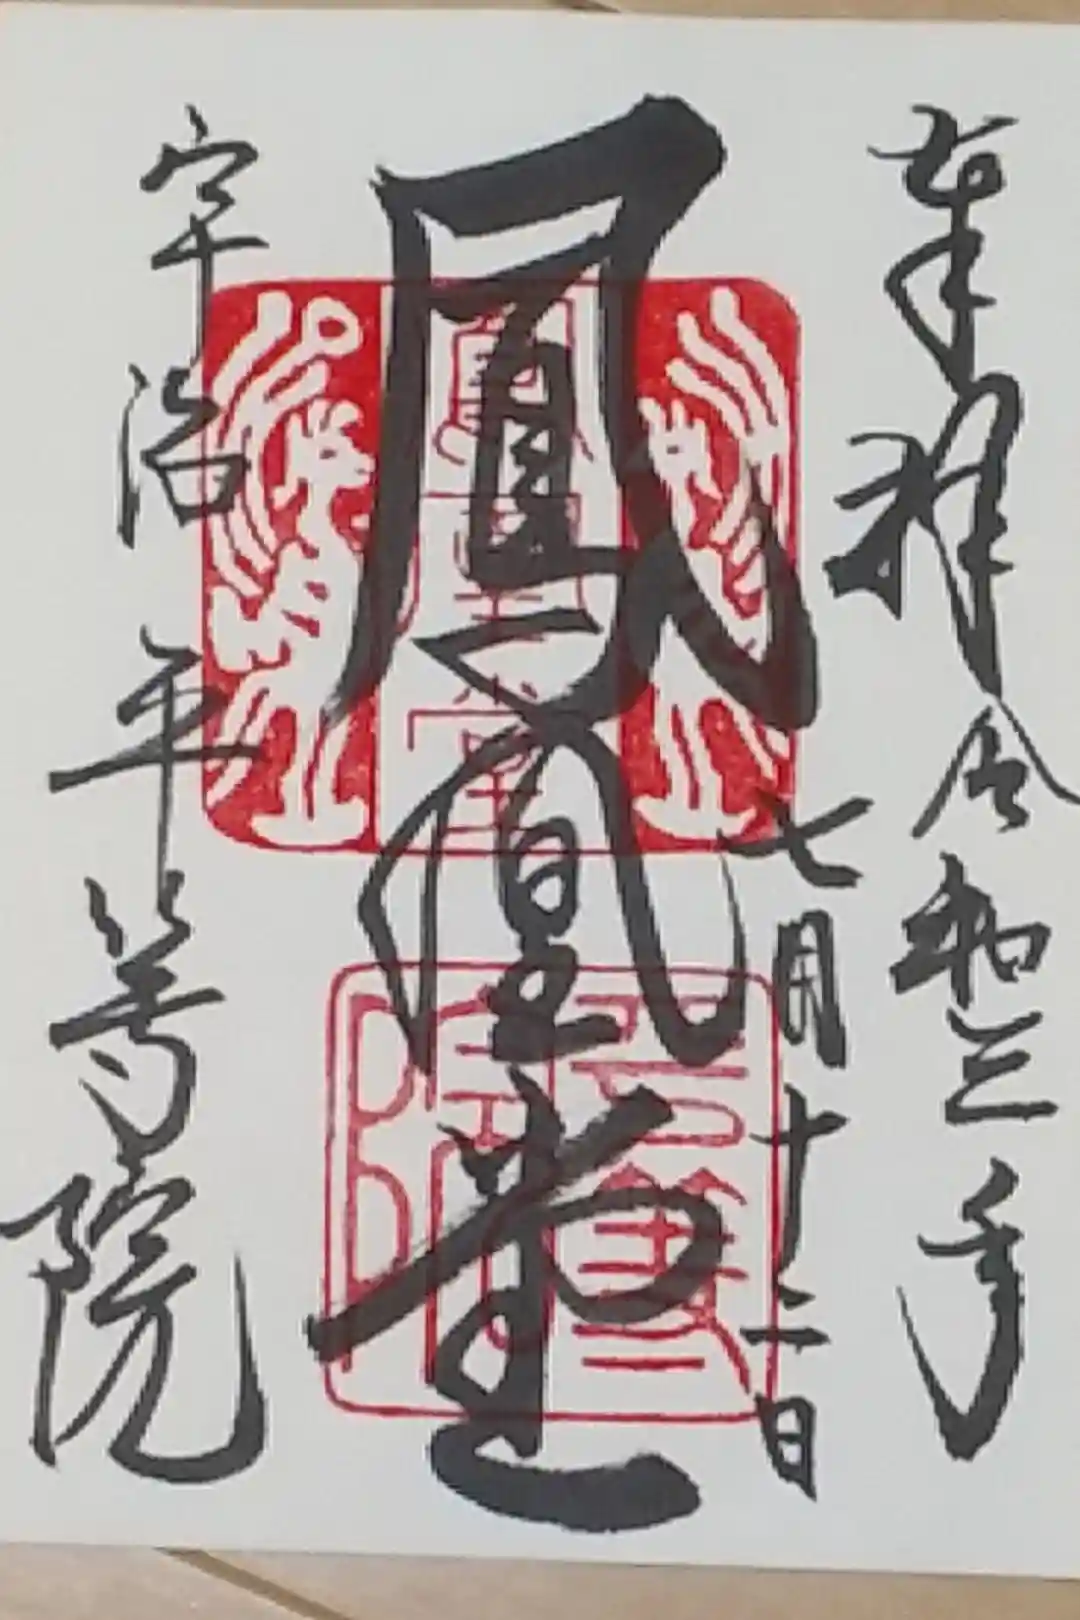 奉拝 令和三年
七月十二日
鳳凰堂
宇治 平等院
鳳凰堂
平等院